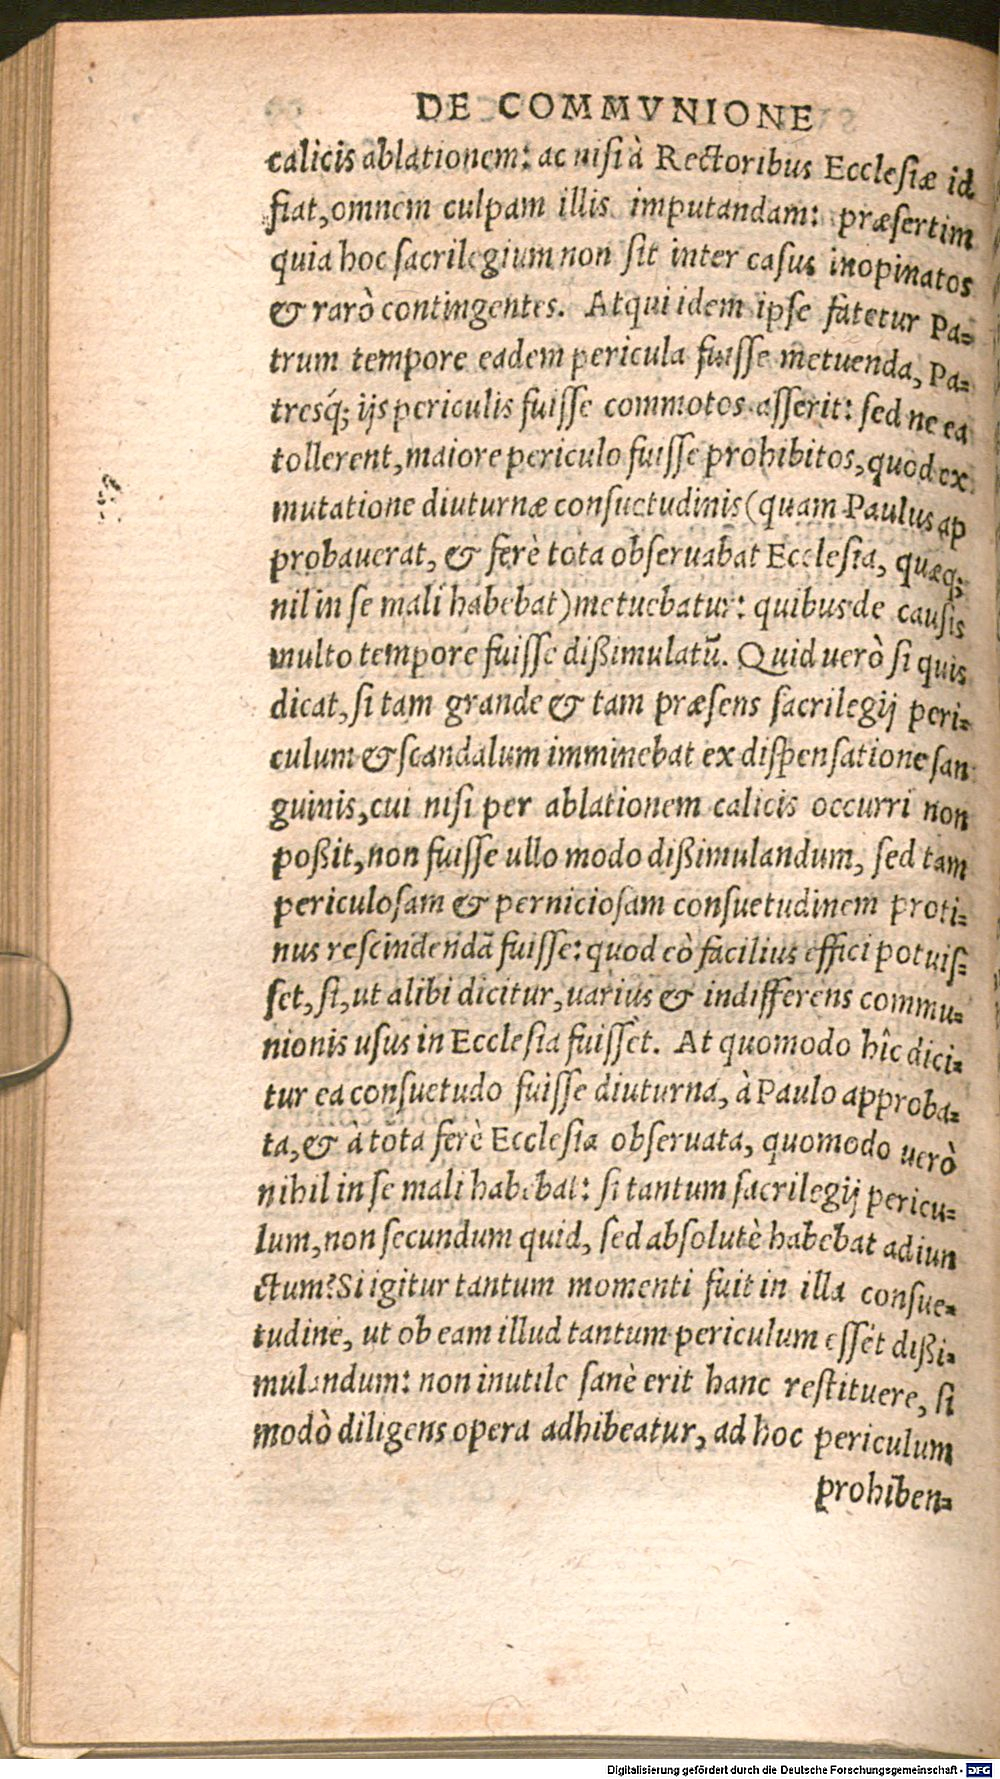 DE COMMVNIONE
calicis ablationem: ac nisi à Rectoribus Ecclesiæ id
fiat, omnem culpam illis imputandam: præsertim
quia hoc sacrilegium non sit inter casus inopinatos
& rarò contingentes. Atqui idem ipse fatetur Pa-
trum tempore eadem pericula fuisse metuenda, Pa-
tresq́; ijs periculis fuisse commotos asserit: sed ne ea
tollerent, maiore periculo fuisse prohibitos, quod ex
mutatione diuturnæ consuetudinis (quam Paulus ap
probauerat, & ferè tota obseruabat Ecclesia, quæq;
nil in se mali habebat) metuebatur: quibus de causis
multo tempore fuisse dißimulatũ. Quid uerò si quis
dicat, si tam grande & tam præsens sacrilegij peri-
culum & scandalum imminebat ex dispensatione san
guinis, cui nisi per ablationem calicis occurri non
poßit, non fuisse ullo modo dißimulandum, sed tam
periculosam & perniciosam consuetudinem proti-
nus rescindendã fuisse: quod eò facilius effici potuis-
set, si, ut alibi dicitur, uarius & indifferens commu-
nionis usus in Ecclesia fuisset. At quomodo hîc dici-
tur ea consuetudo fuisse diuturna, à Paulo approba-
ta, & à tota ferè Ecclesia obseruata, quomodo uerò
nihil in se mali habebat: si tantum sacrilegij pericu-
lum, non secundum quid, sed absolutè habebat adiun
ctum? Si igitur tantum momenti fuit in illa consue-
tudine, ut ob eam illud tantum periculum esset dißi-
mulandum: non inutile sanè erit hanc restituere, si
modò diligens opera adhibeatur, ad hoc periculum
prohiben-
Digitalisierung gefördert durch die Deutsche Forschungsgemeinschaft - DFG